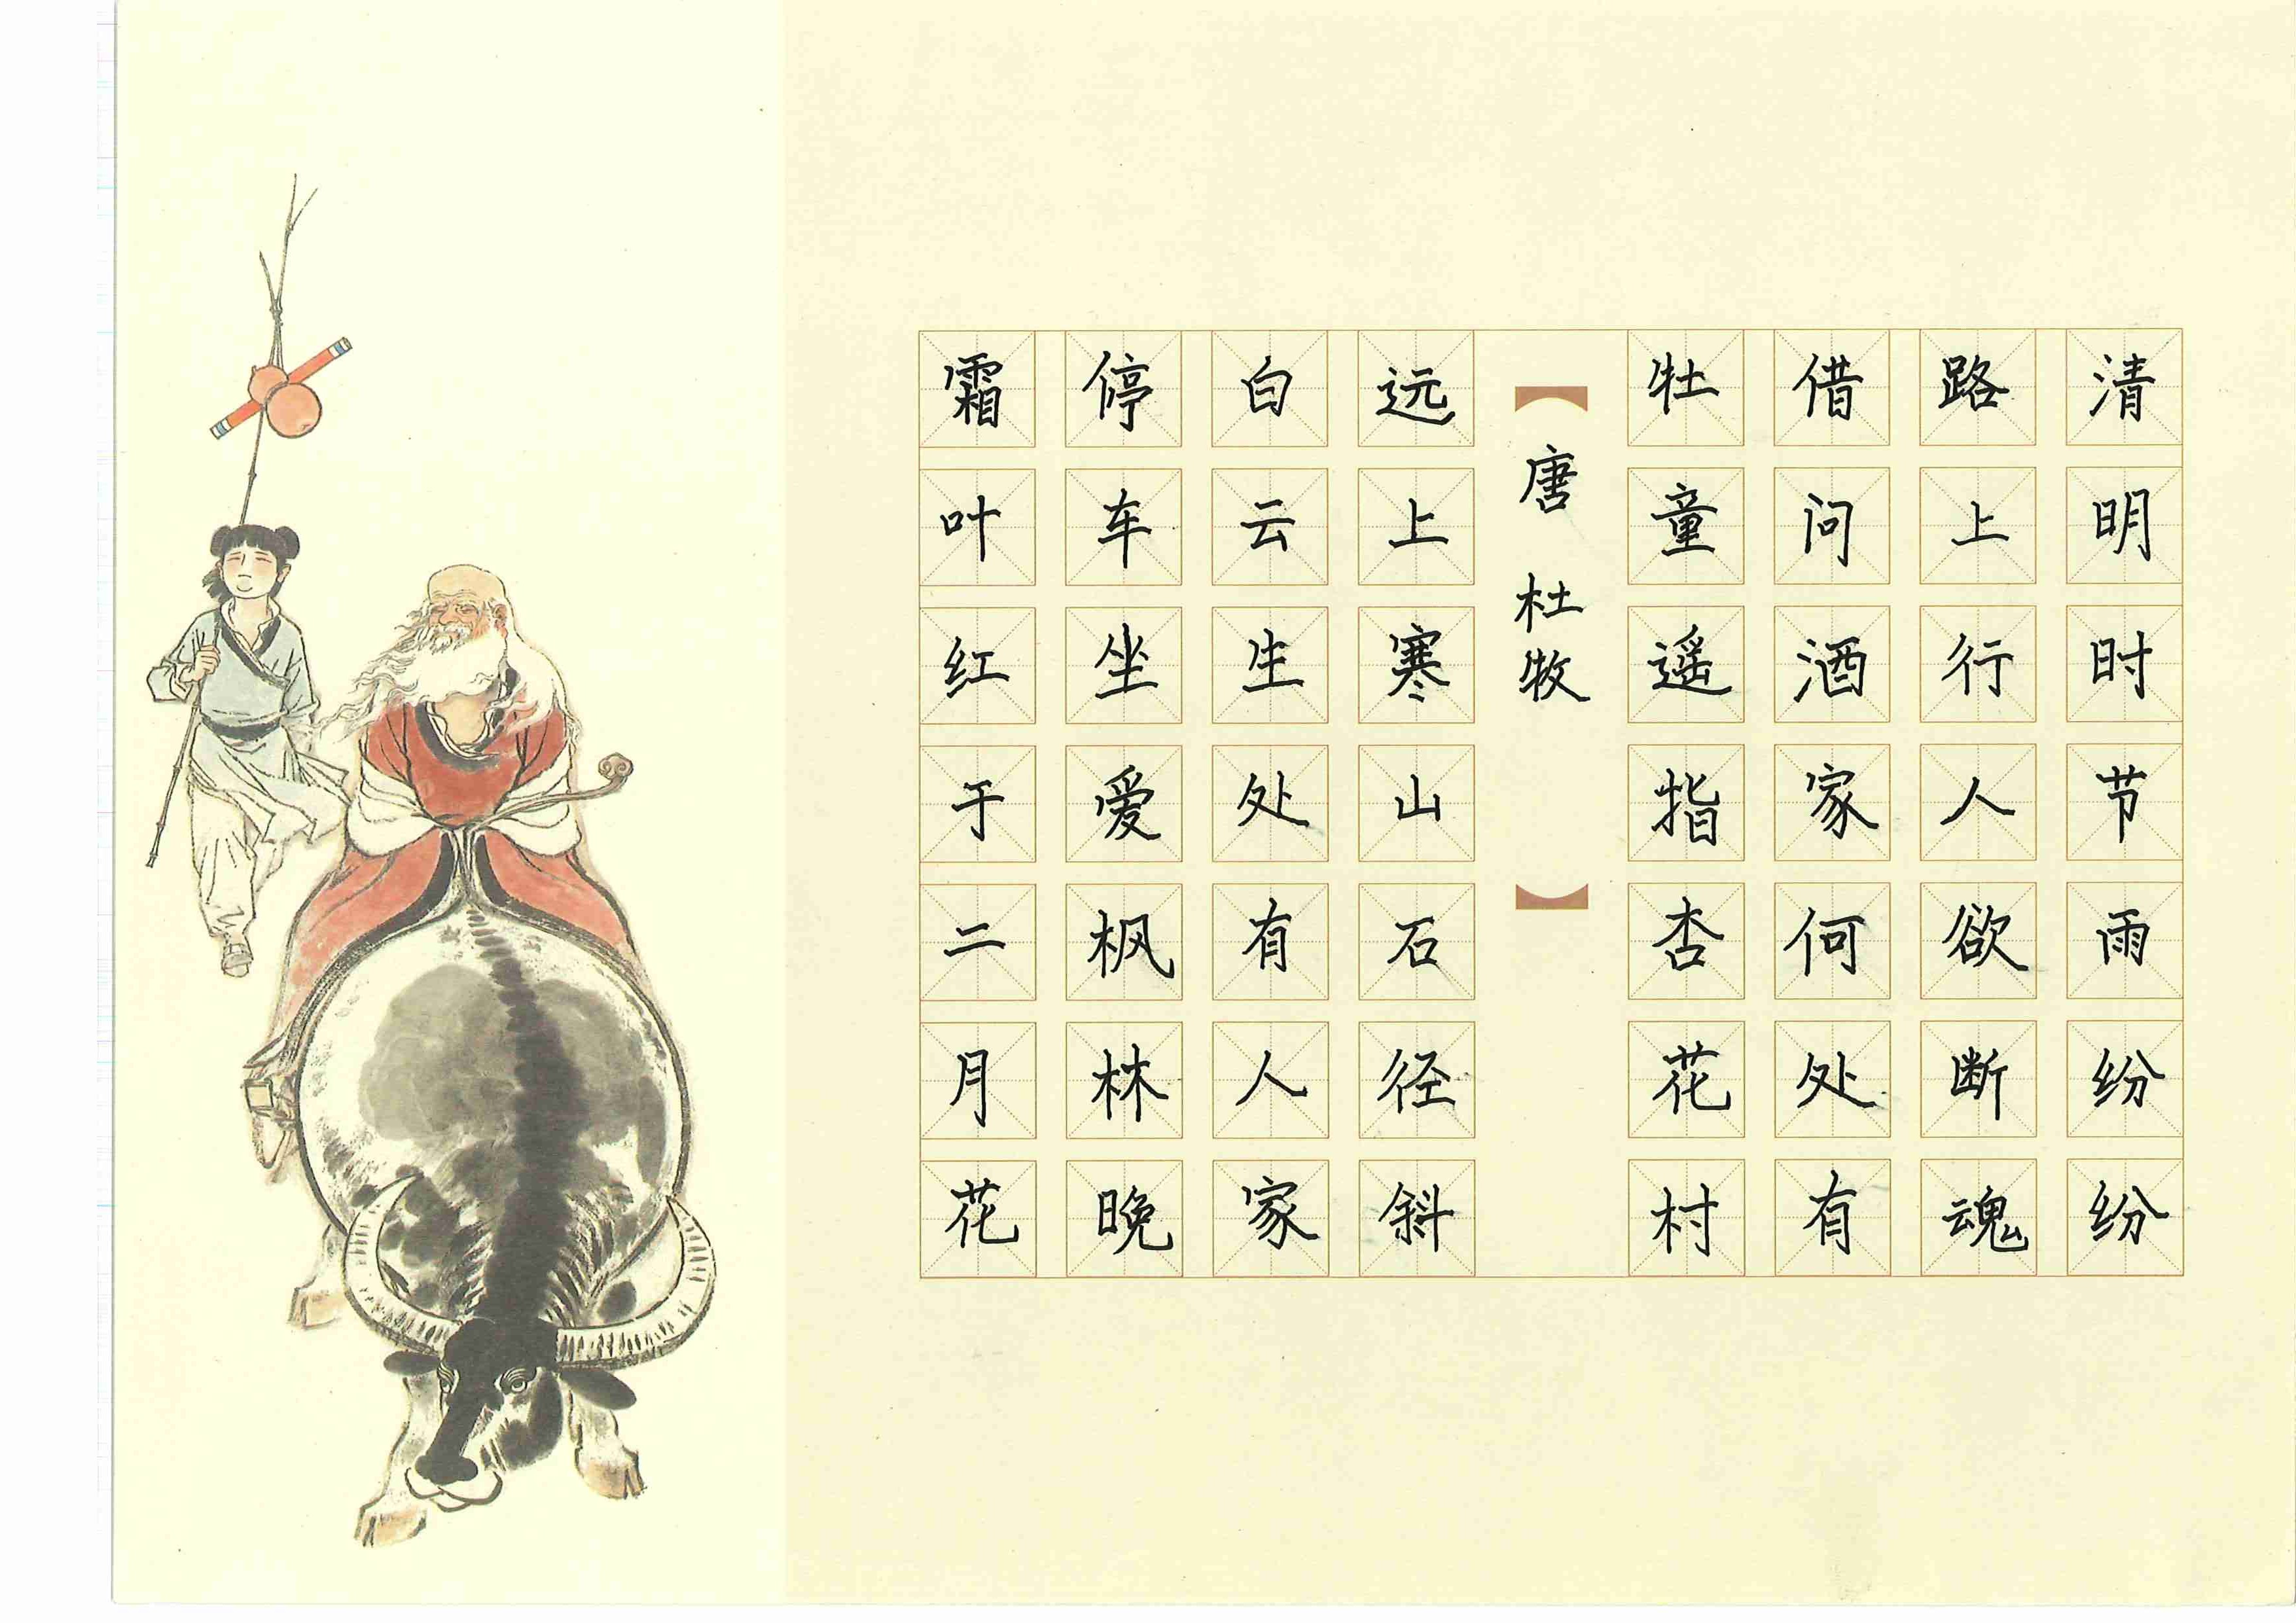 清明时节雨纷纷
路上行人欲断魂
借问酒家何处有
牡童遥指杏花村
【唐 杜牧】
远上寒山石径斜
白云生处有人家
停车坐爱枫林晚
霜叶红于二月花